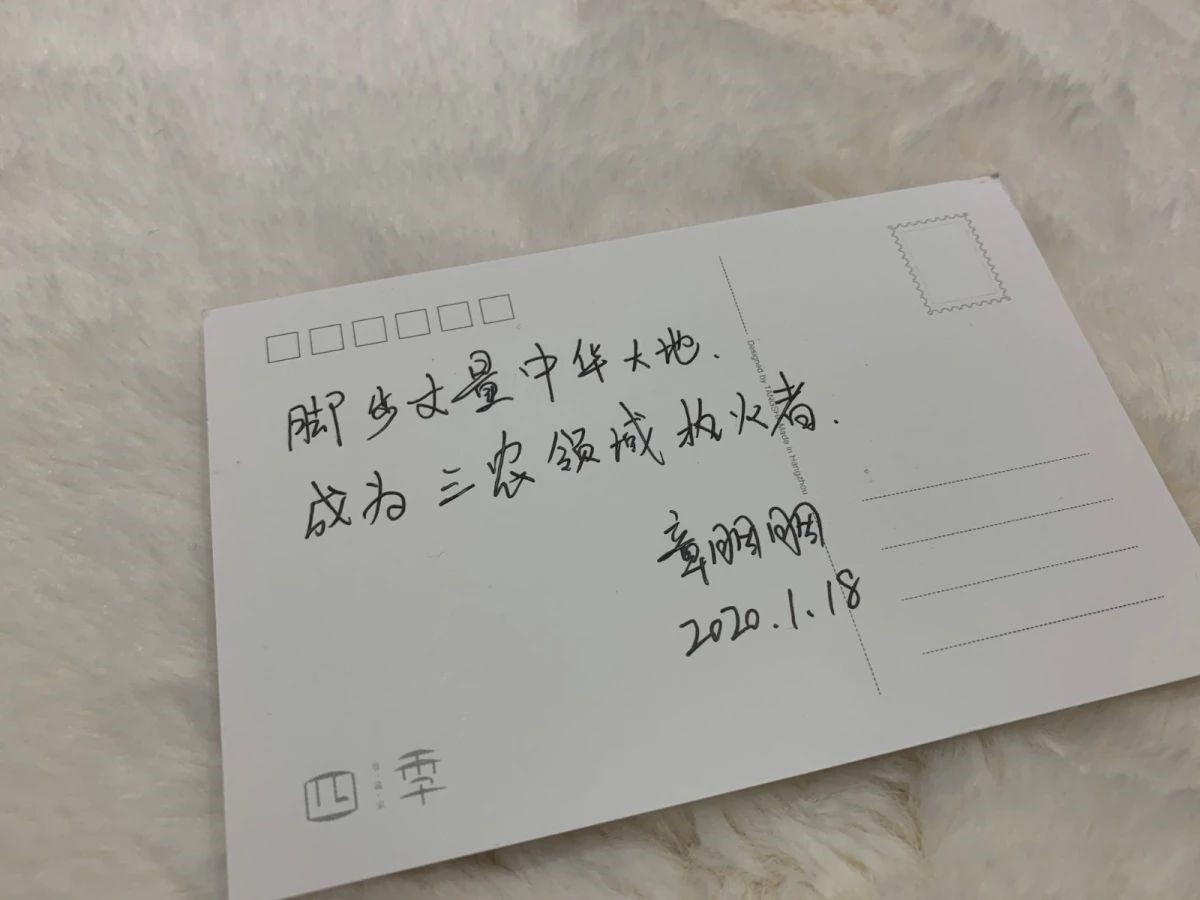 脚步丈量中华大地.
成为三农领域执火者.
章胭胭
2020.1.18
Designed by TANGSHI Made in Hangzhou
四季